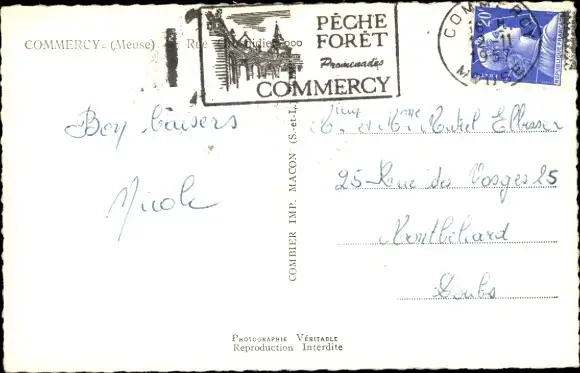 COMMERCY (Meuse) Rue
PÊCHE
FORÊT
Promenades
COMMERCY
20
COMMERCY
MEUSE
Bons baisers
Nicole
COMBIER IMP. MACON (S.-et-L.)
Mr et Mme
25 Rue des Vosges 25
Montbéliard
Doubs
PHOTOGRAPHIE VÉRITABLE
Reproduction Interdite